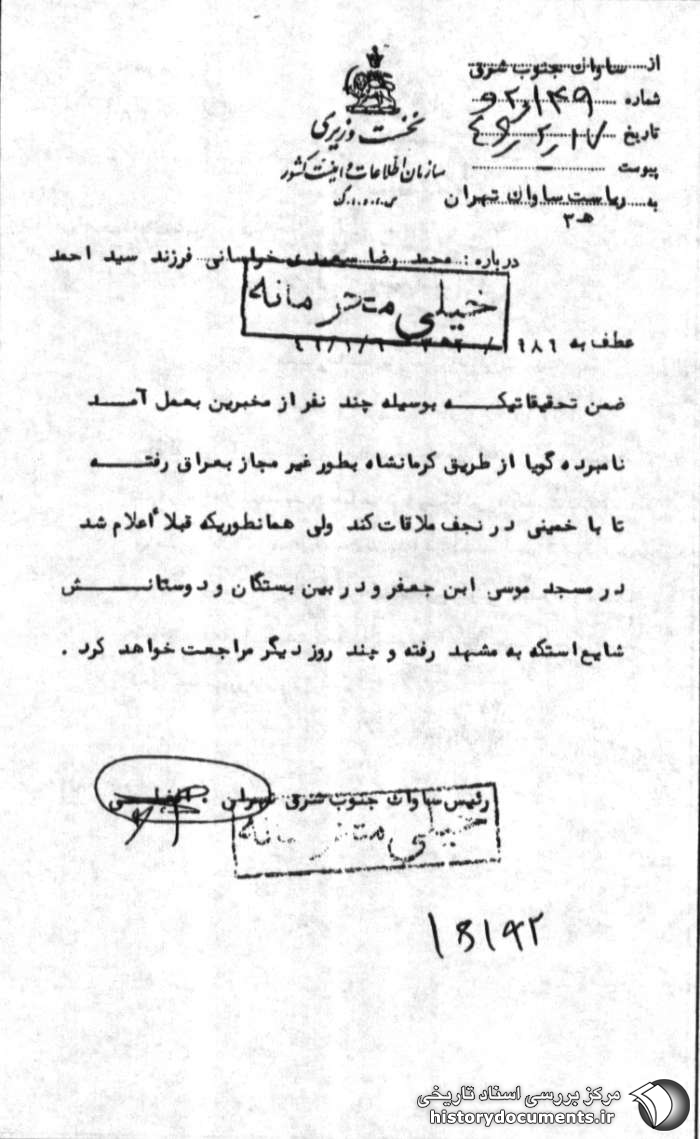 از ساواک جنوب شرق
شماره
تاریخ
پیوست —
به ریاست ساواک تهران
ه‍ ۲
نخست وزیری
سازمان اطلاعات و امنیت کشور
س.ا.و.ا.ک
درباره : محمد رضا سعیدی خراسانی فرزند سید احمد
خیلی محرمانه
عطف به
ضمن تحقیقاتیکه بوسیله چند نفر از مخبرین بعمل آمد
نامبرده گویا از طریق کرمانشاه بطور غیر مجاز بعراق رفته
تا با خمینی در نجف ملاقات کند ولی همانطوریکه قبلا اعلام شد
در مسجد موسی ابن جعفر و در بین بستگان و دوستانش
شایع استکه به مشهد رفته و چند روز دیگر مراجعت خواهد کرد .
رئیس ساواک جنوب شرق تهران
خیلی محرمانه
مرکز بررسی اسناد تاریخی
historydocuments.ir